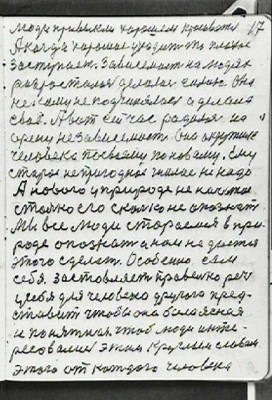 Люди привыкли хорошем кроватью 17
А когда хорошее уходит то плохое
заступает. Зависимость на людях
разросталься делалась силою она
не кому не подчинялась а делала
своё. А вот сейчас родился на
арену независимость. Она окружит
человека по своему по новому. Ему
старое не пригодное знание не надо
А нового у природе не початое
столько его сколько не опознать
Мы все люди стараемся в при
роде опознать а нам не удается
этого сделать. Особенно сам
себя заставляет правильно речь
у себя для человека другого пред-
ставить чтобы она была ясная
и понятная чтоб люди инте-
ресовались этим круглым словам
этого от каждого человека